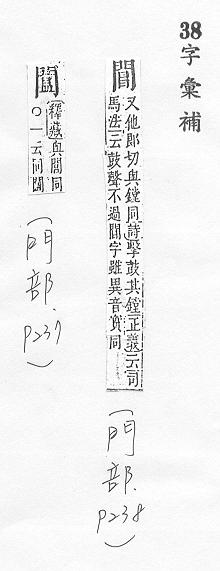 38字彙補
閶
又他郎切與鏜同詩擊鼓其鏜正義云司
馬法云鼓聲不過閶字雖異音實同
(門部.p238)
釋藏與同
○一云同
(門部.p237)